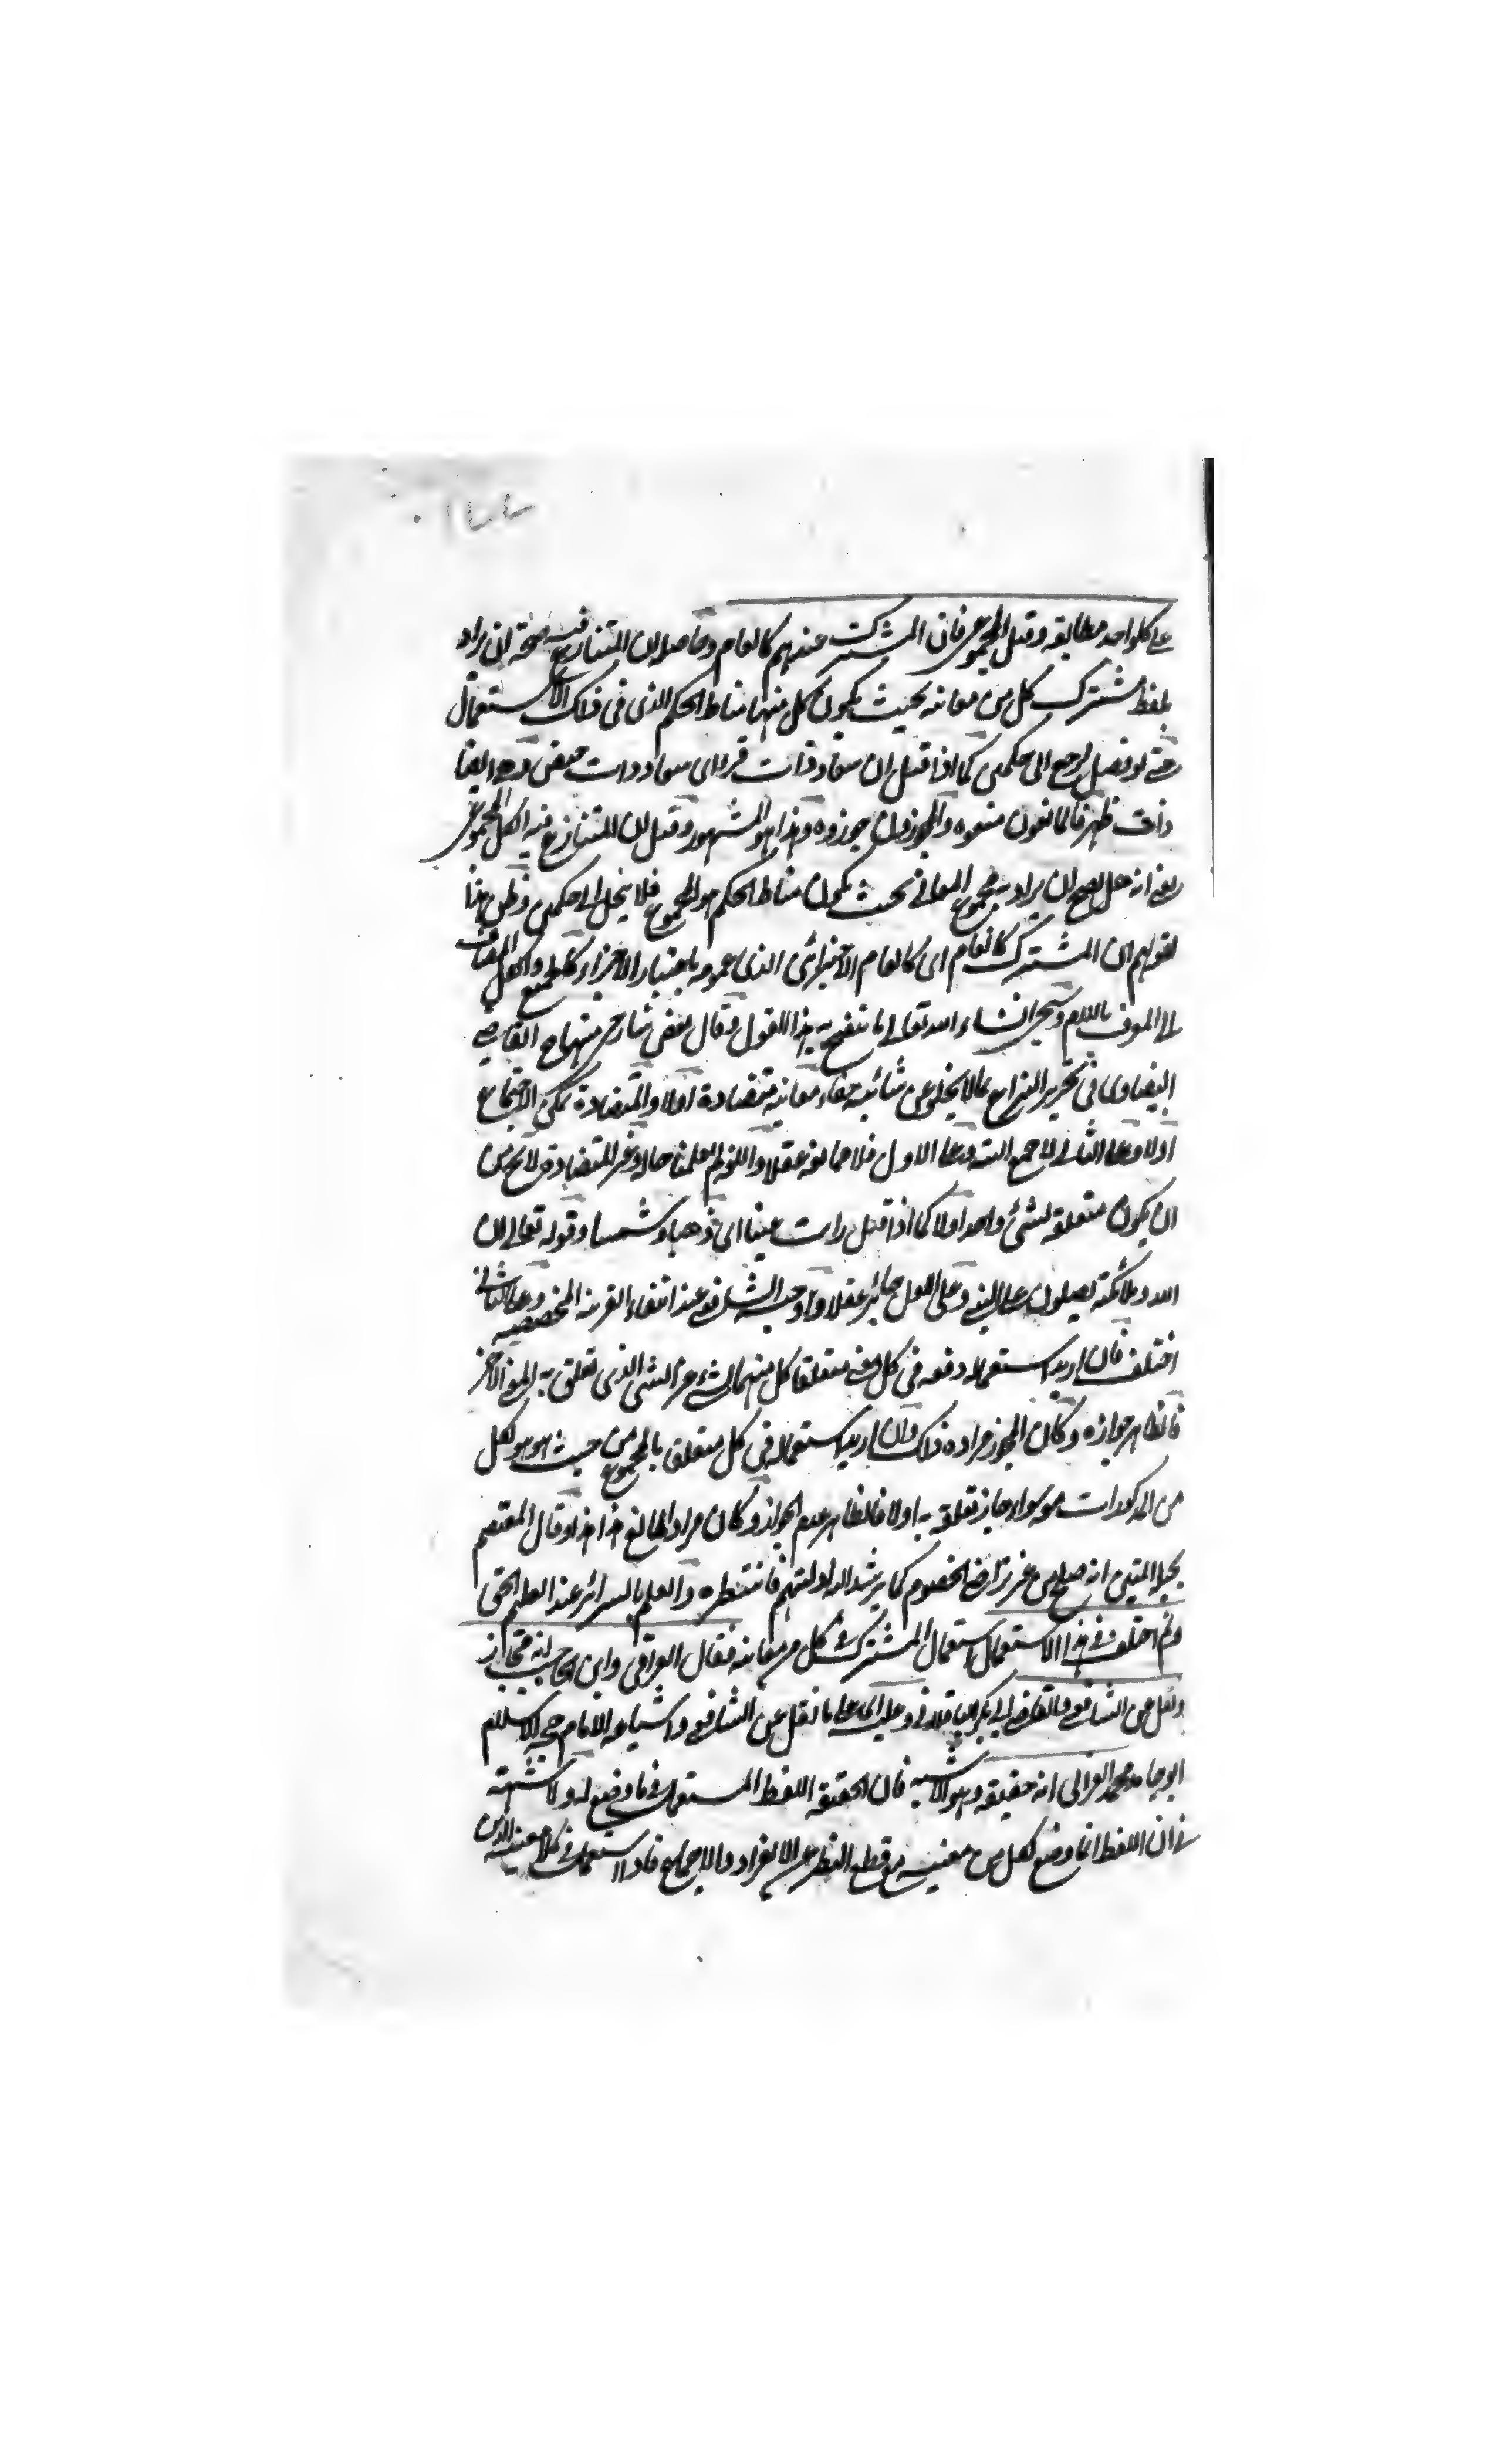 على كل واحد مطابقه وقيل المجموعي فان المشترك عندهم كالعام وحاصله ان المتنازع فيه صحة ان يراد
بلفظ مشترك كل من معانيه بحيث يكون كل منها مناط الحكم الذي في ذلك الاستعمال
حتى لو فصل لرجع الى حكمين كما اذا قيل ان سعاد ذات قرء اي سعاد ذات حيض وهي ايضا
ذات طهر فالمانعون منعوه والمجوزون جوزوه وهذا هو المشهور وقيل ان المتنازع فيه الكل المجموعي
يعني انه هل يصح ان يراد به مجموع المعاني بحيث يكون مناط الحكم هو المجموع فلا ينحل الى حكمين وظن هذا
لقولهم ان المشترك كالعام اي كالعام الاجزائي الذي عمومه باعتبار الاجزاء كالجميع والكل المضاف
الى المعرف باللام وسيجئ ان شاء الله تعالى ما يتضح به هذا القول وقال بعض شارحي منهاج القاضي
البيضاوي في تحرير النزاع مما لا يخلو عن شائبة خفاء معانيه متضادة اولا والمتضادة يمكن الاجتماع
اولا وعلى الثاني لا جمع البته وعلى الاول فلا مانع عقلا واللغة لم يعلمنا حاله وغير المتضادة لا يخ من
ان يكون متعلقه لشئ واحد اولا كما اذا قيل رات عينا اي ذهبا وشمسا وقوله تعالى ان
الله وملائكته يصلون على النبي وعلى الاول جائز عقلا واوجبه الشافعي عند انتفاء القرينه المخصصه وعلى الثاني
اختلف فان اريد استعماله دفعه في كل معنى متعلقا كل منهما لشئ غير الشئ الذي تعلق به المعنى الاخر
فالظاهر جوازه وكان المجوز مراده ذلك وان اريد استعماله في كل متعلق بالمجموع من حيث هو هو لكل
من المذكورات سواء جاز تعلقه به اولا فالظاهر عدم الجواز وكان مراد المانع هذا هذا وقال المعتصم
بحبل المتين انه صلح من غير تراضي الخصوم كما يرشد اليه ادلتهم فانتظره والعلم بالسرائر عند العليم الحق
وثم اختلف في هذا الاستعمال استعمال المشترك في كل من معانيه فقال العراقي وابن الحاجب انه مجاز
ونقل عن الشافعي والقاضي ابي بكر الباقلاني وعليه اي على ما نقل عن الشافعي واشياعه الامام حجة الاسلام
ابو حامد محمد الغزالي انه حقيقه وهو الاشبه فان الحقيقه اللفظ المستعمل في ما وضع له ولا شبهة
في ان اللفظ انما وضع لكل من معنييه مع قطع النظر عن الانفراد والاجماع فاذا استعمل في كلا معنييه الذين